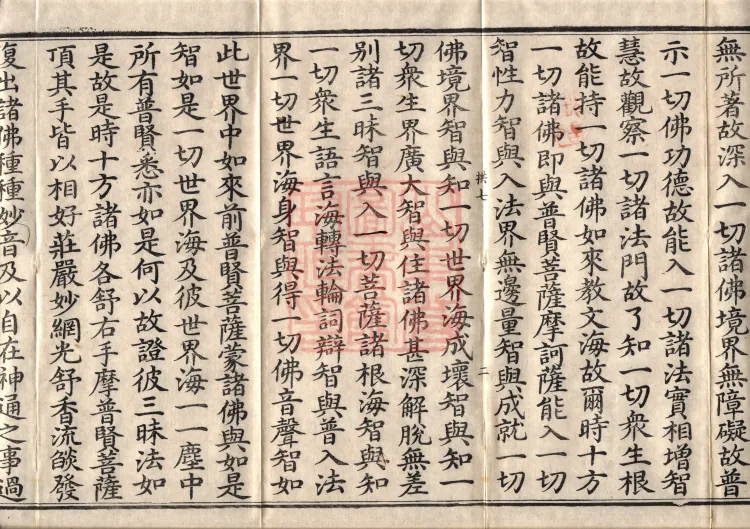 無所著故深入一切諸佛境界無障礙故普
示一切佛功德故能入一切諸法實相增智
慧故觀察一切諸法門故了知一切衆生根
故能持一切諸佛如來教文海故爾時十方
一切諸佛即與普賢菩薩摩訶薩能入一切
智性力智與入法界無邊量智與成就一切
拱七 二
佛境界智與知一切世界海成壞智與知一
切衆生界廣大智與住諸佛甚深解脫無差
別諸三昧智與入一切菩薩諸根海智與知
一切衆生語言海轉法輪詞辯智與普入法
界一切世界海身智與得一切佛音聲智如
此世界中如來前普賢菩薩蒙諸佛與如是
智如是一切世界海及彼世界海一一塵中
所有普賢悉亦如是何以故證彼三昧法如
是故是時十方諸佛各舒右手摩普賢菩薩
頂其手皆以相好莊嚴妙網光舒香流燄發
復出諸佛種種妙音及以自在神通之事過